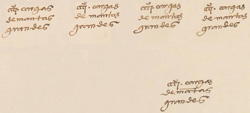 cargas
de mantas
grandes
cargas
de mantas
grandes
cargas
de mantas
grandes
cargas
de mantas
grandes
cargas
de mantas
grandes